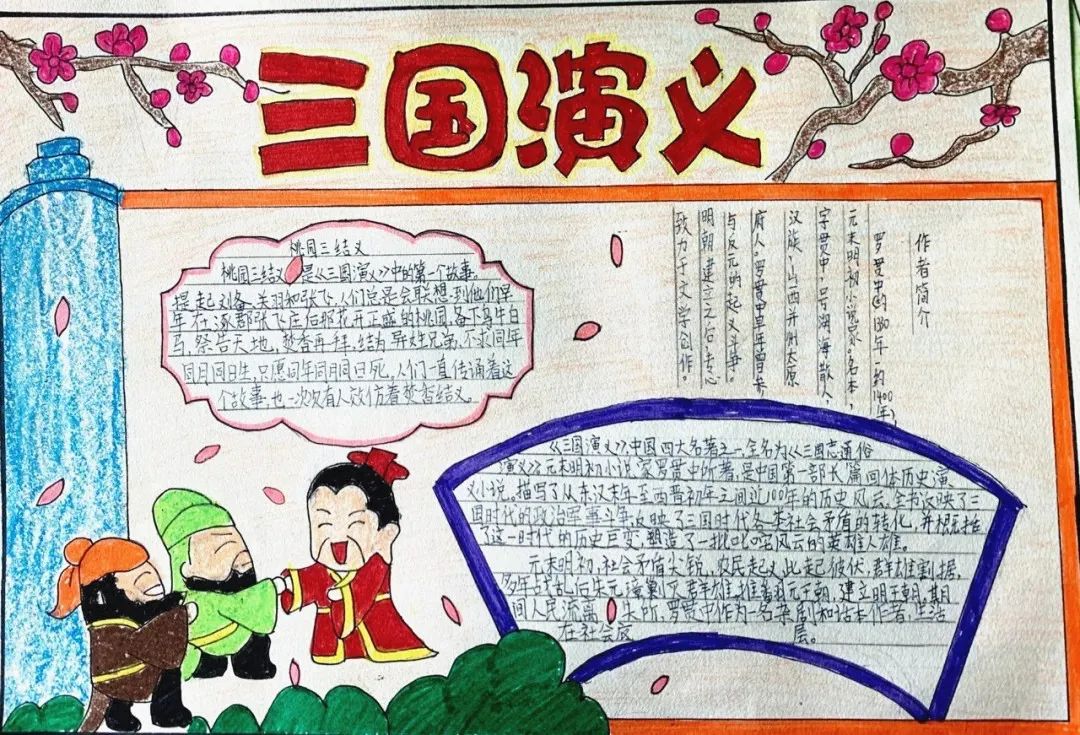 三国演义
桃园三结义
桃园三结义 是《三国演义》中的第一个故事。
提起刘备、关羽和张飞,人们总是会联想到他们早
年在涿郡张飞庄后那花开正盛的桃园,备下乌牛白
马,祭告天地,焚香再拜,结为异姓兄弟,不求同年
同月同日生,只愿同年同月同日死,人们一直传诵着这
个故事,也一次次有人效仿着焚香结义。
作者简介
罗贯中(约1330年-约1400年)
元末明初小说家。名本,
字贯中,号湖海散人,
汉族,山西并州太原
府人。罗贯中早年曾
与反元的起义斗争。
明朝建立之后,专心
致力于文学创作。
《三国演义》中国四大名著之一,全名为《三国志通俗
演义》元末明初小说家罗贯中所著,是中国第一部长篇回体历史演
义小说。描写了从东汉末年至西晋初年之间近100年的历史风云。全书反映了三
国时代的政治军事斗争,反映了三国时代各类社会矛盾的转化,并概括
了这一时代的历史巨变,塑造了一批叱咤风云的英雄人雄。
元末明初,社会矛盾尖锐,农民起义此起彼伏,群雄割据,
多年战乱后朱元璋剿灭群雄,推翻元王朝,建立明王朝,期
间人民流离 失所,罗贯中作为一名杂剧和话本作者,生活
在社会底 层。